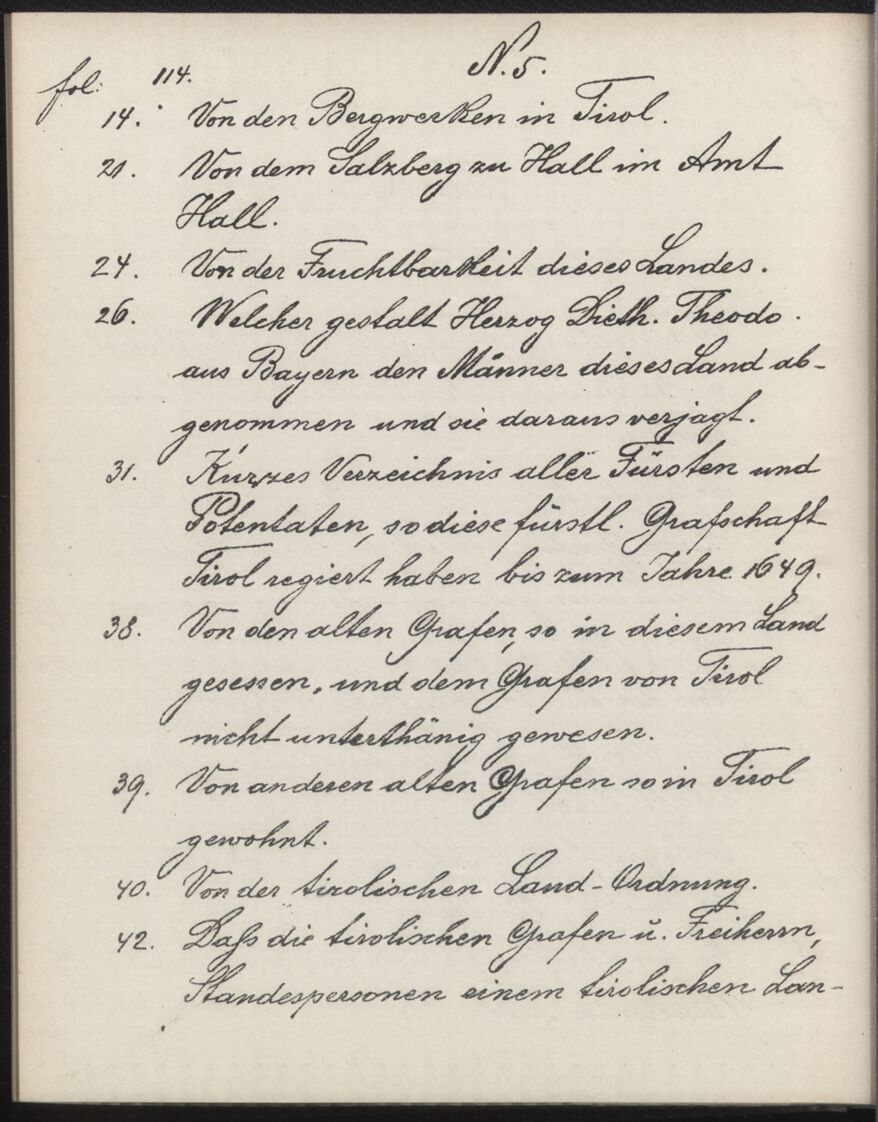 fol. 114. N. 5.
14. Von den Bergwerken in Tirol.
21. Von dem Salzberg zu Hall im Amt
Hall.
24. Von der Fruchtbarkeit dieses Landes.
26. Welcher gestalt Herzog Dieth. Theodo.
aus Bayern den Männer dieses Land ab-
genommen und sie daraus verjagt.
31. Kurzes Verzeichnis aller Fürsten und
Potentaten, so diese fürstl. Grafschaft
Tirol regiert haben bis zum Jahre 1649.
38. Von den alten Grafen, so in diesem Land
gesessen, und dem Grafen von Tirol
nicht unterthänig gewesen.
39. Von anderen alten Grafen so in Tirol
gewohnt.
40. Von der tirolischen Land-Ordnung.
42. Daß die tirolischen Grafen u. Freiherrn,
Standespersonen einem tirolischen Lan-